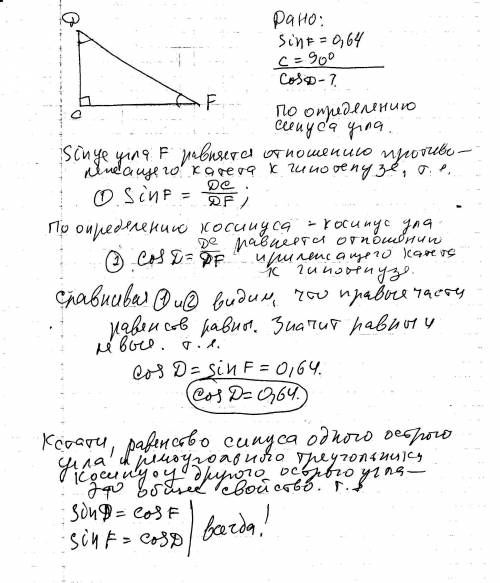 D
C
F
Дано:
sinF = 0,64
C = 90°
cosD - ?
По определению
синуса угла.
Sinус угла F равняется отношению противо-
лежащего катета к гипотенузе, т. е.
① SinF = DC/DF ;
По определению косинуса - косинус угла
равняется отношению
② cosD = DC/DF прилежащего катета
к гипотенузе.
Сравнивая ① и ② видим, что правые части
равенств равны. Значит равны и
левые. т. е.
cosD = sinF = 0,64.
cosD = 0,64.
Кстати, равенство синуса одного острого
угла прямоугольного треугольника
косинусу другого острого угла -
это общее свойство. т. е
sinD = cosF
sinF = cosD
всегда!